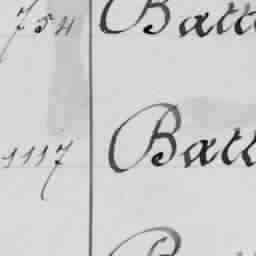 754 Batt
1117 Batt